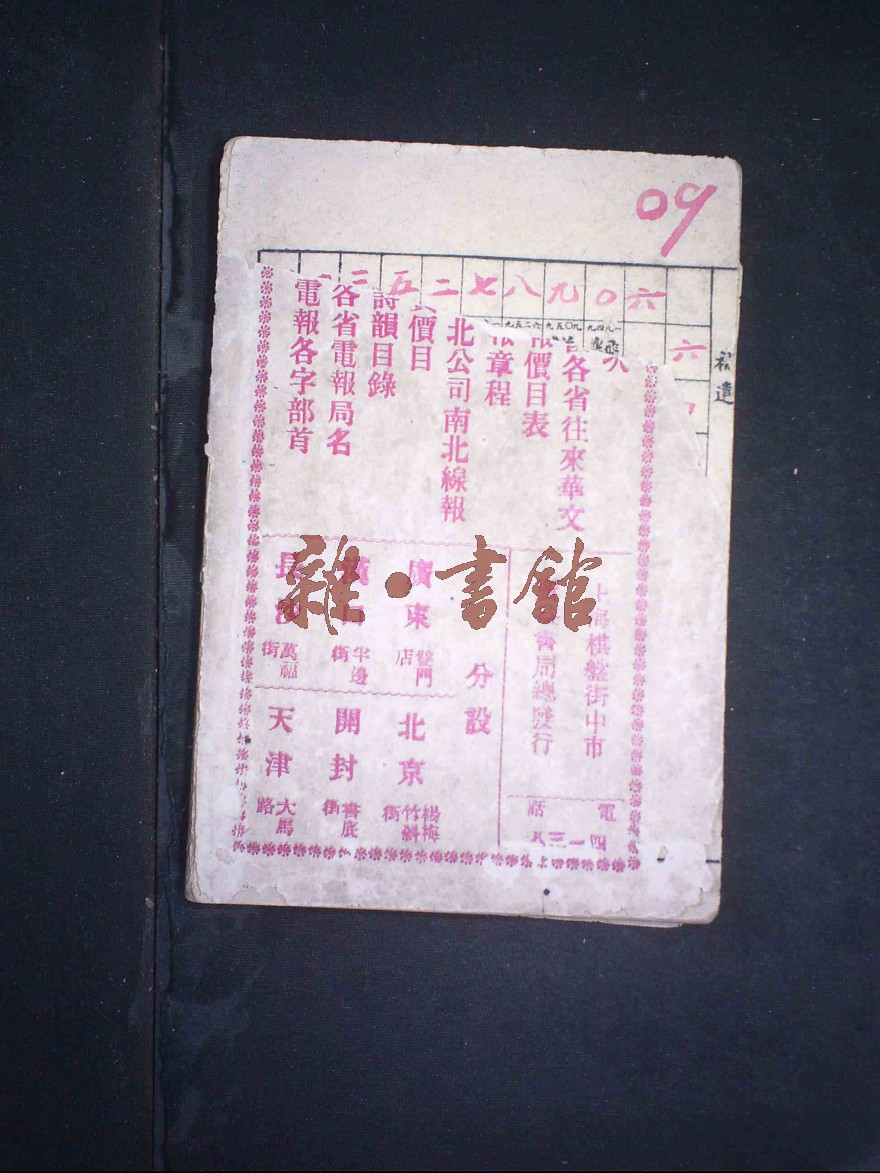 09
六〇九八七二五二一
六
遺
各省往來華文
價目表
章程
北公司南北線報
價目
詩韻目錄
各省電報局名
電報各字部首
上海棋盤街中市
書局總發行
電話
四一三八
分設
廣東
雙門店
漢口
半邊街
長沙
萬福街
北京
楊梅竹斜街
開封
書店街
天津
大馬路
雜·書館